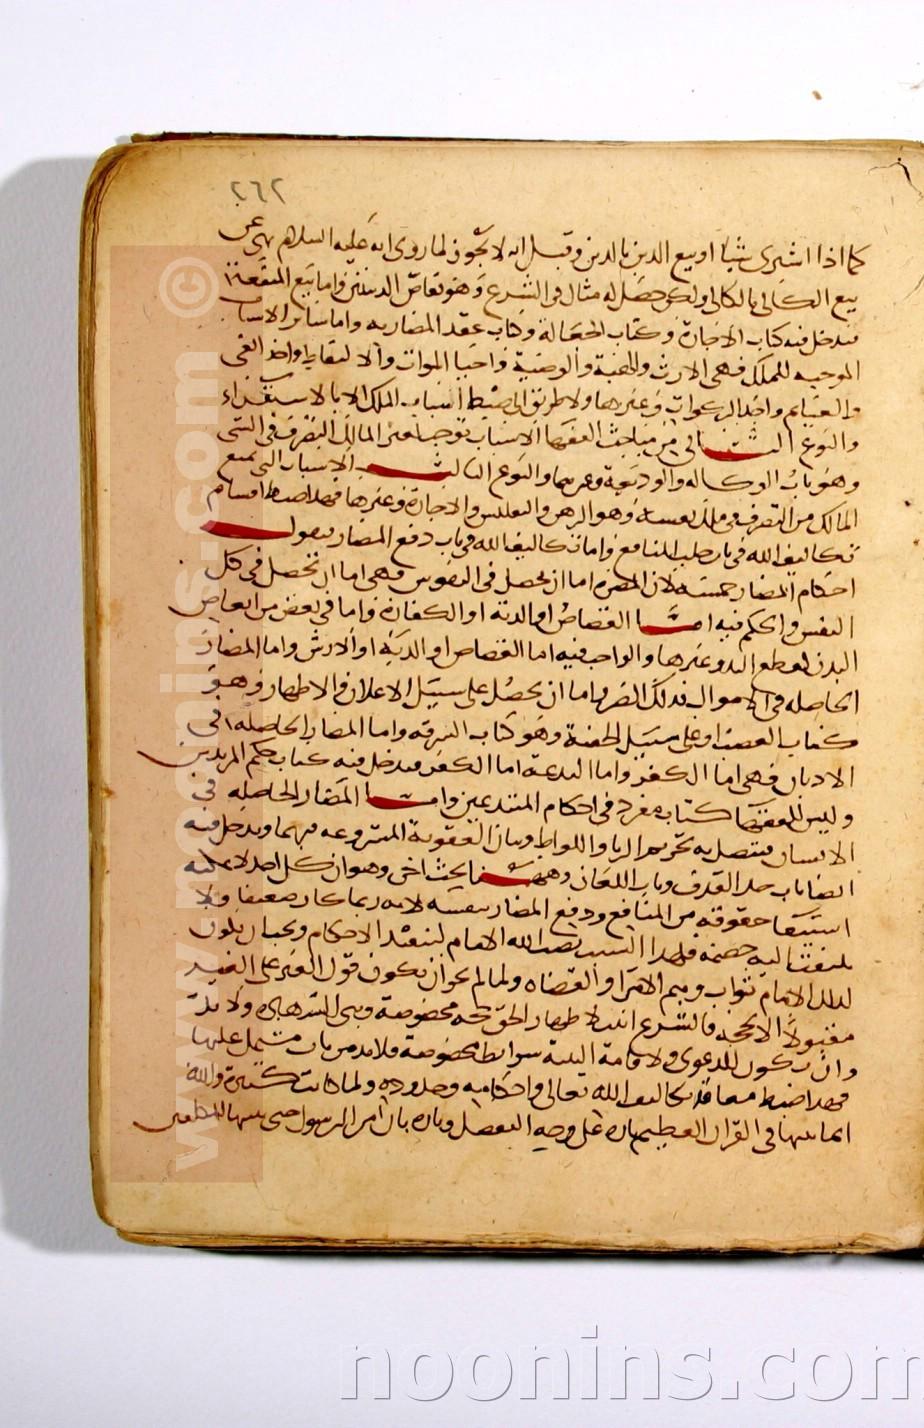 ٢٦٢
كما اذا اشترى شيأ او بيع الدين بالدين وقيل انه لا يجوز لما روى انه عليه السلام نهى عن
بيع الكالى بالكالى ولكن حصل له مثال في الشرع وهو تقاص الدينين واما بيع المنفعة
فيدخل فيه كتاب الاجارة وكتاب الجعالة وكتاب عقد المضاربه واما سائر الاسباب
الموجبه للملك فهى الارث والهبة والوصية واحيا الموات والالتقاط واخذ الفى
والغنايم واخذ الزكوات وغيرها ولا طريق الى ضبط اسباب الملك الا بالاستقراء
والنوع الثانى من مباحث الفقها الاسباب توجب لغير المالك التصرف في الشى
وهو باب الوكاله والوديعة وغيرهما والنوع الثالث الاسباب التى تمنع
المالك من التصرف في ملك نفسه وهو الرهن والتفليس والاجارة وغيرها فهذا ضبط اقسام
تكاليف الله في باب جلب المنافع واما تكاليف الله في باب دفع المضار فنقول
احكام المضار خمسة لان المضرة اما ان يحصل في النفوس فهى اما ان تحصل في كل
النفس والحكم فيه اما القصاص او الدية او الكفارة واما في بعض من ابعاض
البدن كقطع اليد وغيرها والواجب فيه اما القصاص او الدية او الارش واما المضار
الحاصله في الاموال فذلك الضرر اما ان يحصل على سبيل الاعلان والاظهار وهو
كتاب الغصب او على سبيل الخفية وهو كتاب السرقه واما المضار الحاصله في
الاديان فهى اما الكفر واما البدعة اما الكفر فيدخل فيه كتاب حكم المرتدين
وليس للفقها كتاب مفرد في احكام المبتدعين واما المضار الحاصله في
الانسان فيتصل به تحريم الزنا واللواط وبيان العقوبة المشروعه فيهما ويدخل فيه
ايضا باب حد القذف وباب اللعان وههنا بحث اخر وهو ان كل احد لا يمكنه
استيفا حقوقه من المنافع ودفع المضار بنفسه لانه ربما كان ضعيفا ولا
يلتفت اليه خصمه فلهذا السبب نصب الله الامام لتنفيذ الاحكام ويجب ان يكون
لذلك الامام نواب وهم الامرا والقضاه ولما لم يجز ان يكون قول الغير على الغير
مقبولا الا بحجة فالشرع اثبت لاظهار الحق حجة مخصوصة وهى الشهادة ولا بد
وان يكون للدعوى ولاقامة البينة شرايط مخصوصة فلا بد من باب مشتمل عليها
فهذا ضبط معاقد تكاليف الله تعالى واحكامه وحدوده ولما كانت كثيرة والله
انما بينها في القران العظيم تارة على وجه التفصيل وتارة بان امر الرسول حتى يبينها للمكلفين
www.noonins.com ©
noonins.com